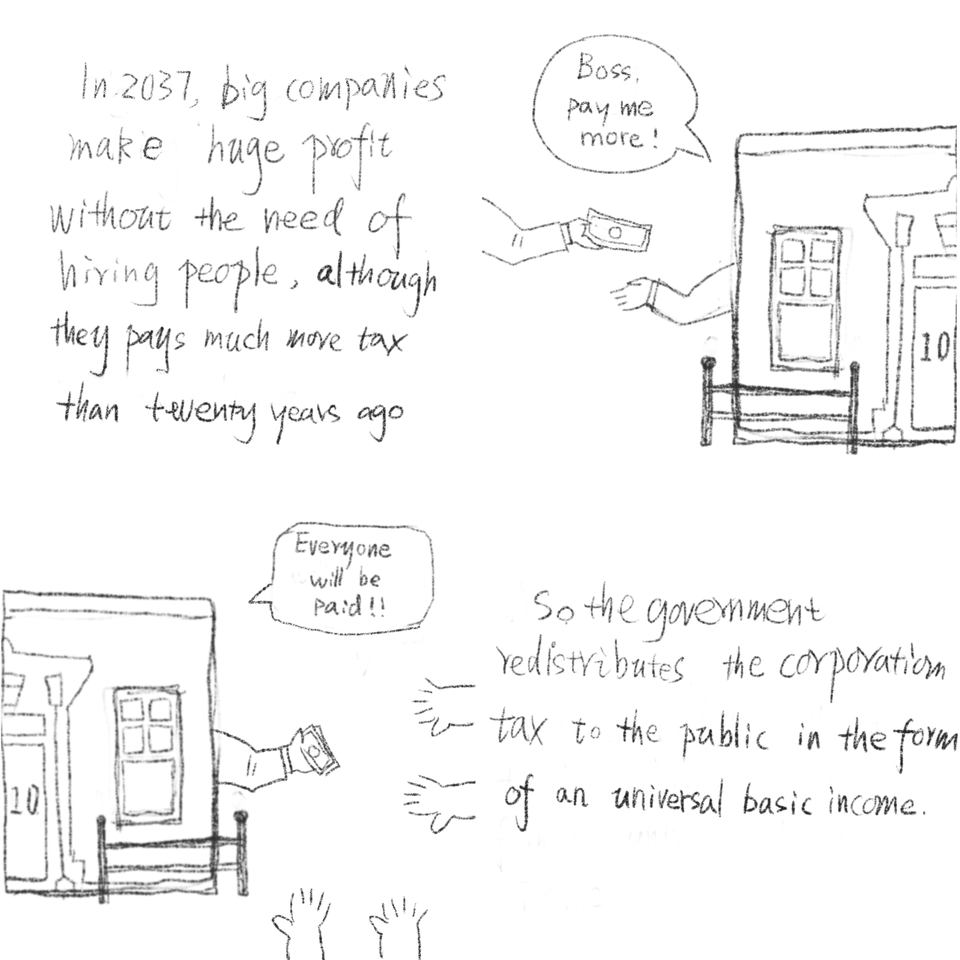 In 2037, big companies
make huge profit
without the need of
hiring people, although
they pays much more tax
than twenty years ago
Boss,
pay me
more!
10
Everyone
will be
paid!!
10
So the government
redistributes the corporation
tax to the public in the form
of an universal basic income.